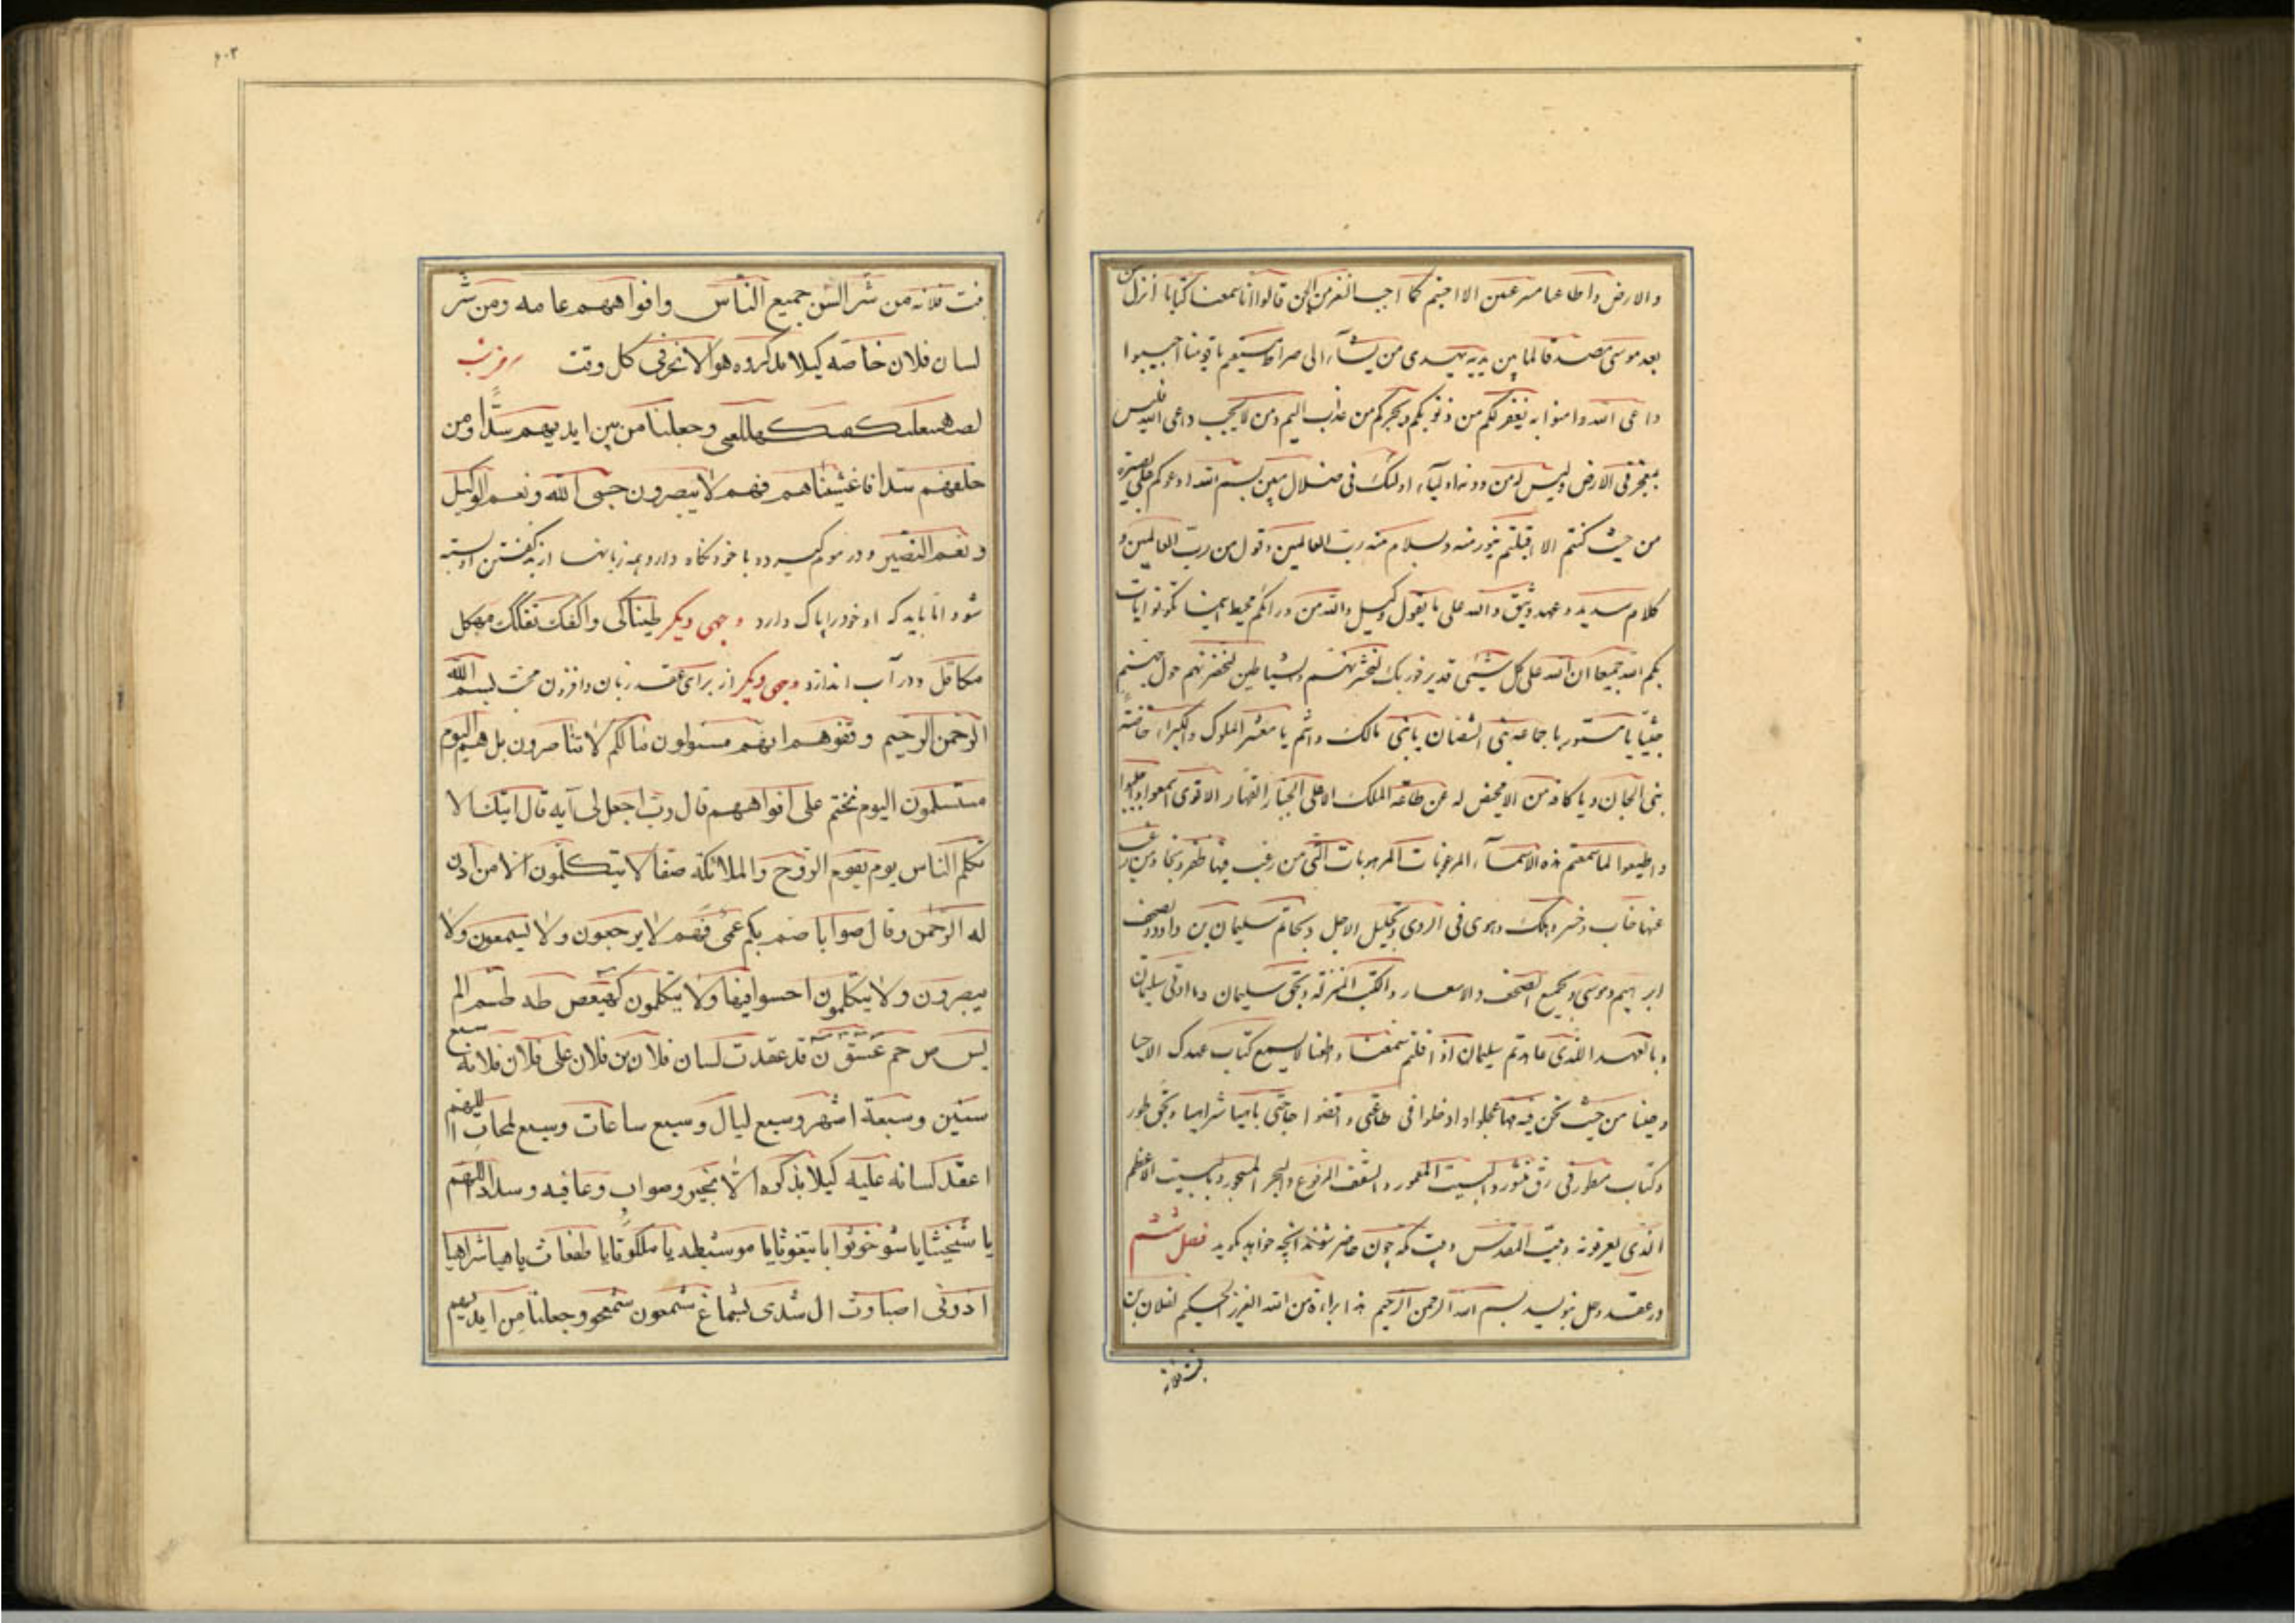 والارض واطاعا مسرعین الا اجبتم کما اجاب النفر من الجن قالوا انا سمعنا کتابا انزل من
بعد موسی مصدقا لما بین یدیه یهدی من یشآء الی صراط مستقیم یا قومنا اجیبوا
داعی الله وامنوا به یغفر لکم من ذنوبکم ویجرکم من عذاب الیم ومن لا یجب داعی الله فلیس
بمعجز فی الارض ولیس له من دونه اولیآء اولئک فی ضلال مبین بسم الله ادعوکم علی بصیرة
من حیث کنتم الا اقبلتم بنور منه وسلام منه رب العالمین وقول من رب العالمین و
کلام سدید وعهد وثیق والله علی ما یقول وکیل والله من ورائکم محیط اینما تکونوا یات
بکم الله جمیعا ان الله علی کل شیئی قدیر فوربک لنحشرنهم والشیاطین لنحضرنهم حول جهنم
جثیا یا مستور یا جماعه بنی النعمان یا بنی مالک وانتم یا معشر الملوک والکبراء خاصة
بنی الجان ویا کافه من الا محیص له عن طاعة الملک الاعلی الجبار القهار الاقوی اسمعوا
واطیعوا لما سمعتم هذه الاسمآء المرغوبات المرهوبات التی من رغب فیها ظفر ونجا ومن
عنها خاب وخسر وهلک وهوی فی الردی وبجلیل الاجل وبخاتم سلیمان بن داود وبصحف
ابرهیم وموسی وبجمیع الصحف والاسفار والکتب المنزلة وبحق سلیمان وما اوتی سلیمان
وبالعهد الذی عاهدتم سلیمان اذ قلتم سمعنا واطعنا لا یسمع کتاب عهدک الا جبا
وجئنا من حیث نحن فیه مهما عجلوا وادخلوا فی طاعتی واقضوا حاجتی باهیا شراهیا وبحق طور
وکتاب مسطور فی رق منشور والبیت المعمور والسقف المرفوع والبحر المسجور وبالبیت الاعظم
الذی یعرفونه وبیت المقدس وبیت مکه چون حاضر شوند انچه خواهد بگوید فصل ششم
در عقد وحل بنویسد بسم الله الرحمن الرحیم هذا براءة من الله العزیز الحکیم لفلان بن
بنت فلانه
۴۰۳
بنت فلانه من شر السن جمیع الناس وافواههم عامه ومن شر
لسان فلان خاصه کیلا یذکروه هو الا بخیر فی کل وقت
وجعلنا من بین ایدیهم سدا ومن
خلفهم سدا فاغشیناهم فهم لا یبصرون حسبی الله ونعم الوکیل
ونعم النصیر ودر موم گیرد و با خود نگاه دارد همه زبانها از بد گفتن او بسته
شود اما باید که او خود را پاک دارد وجهی دیگر طیناکی واکفک تفلک مهکل
مکافل ودر آب اندازد وجهی دیگر از برای عقد زبان وافزون محبت بسم الله
الرحمن الرحیم وقفوهم انهم مسئولون مالکم لا تناصرون بل هم الیوم
مستسلمون الیوم نختم علی افواههم قال رب اجعل لی آیه قال ایتک الا
تکلم الناس یوم یقوم الروح والملائکة صفا لا یتکلمون الا من اذن
له الرحمن وقال صوابا صم بکم عمی فهم لا یرجعون ولا یسمعون ولا
یبصرون ولا یتکلمون احسوا فیها ولا یتکلمون کهیعص طه طسم الم
یس ص حم عسق ن قد عقدت لسان فلان بن فلان علی فلان فلانه سبع
سنین وسبعة اشهر وسبع لیال وسبع ساعات وسبع لمحات اللهم
اعقد لسانه علیه کیلا یذکره الا بخیر وصواب وعافیه وسداد اللهم
یا شیخیثا یا شوخوثوا یا یتغوثا یا موسطیه یا ملکوتا یا طفعاث یا هیا شراهیا
ادونی اصباوث ال شدی شماغ شمعون شمعو وجعلنا من ایدیهم